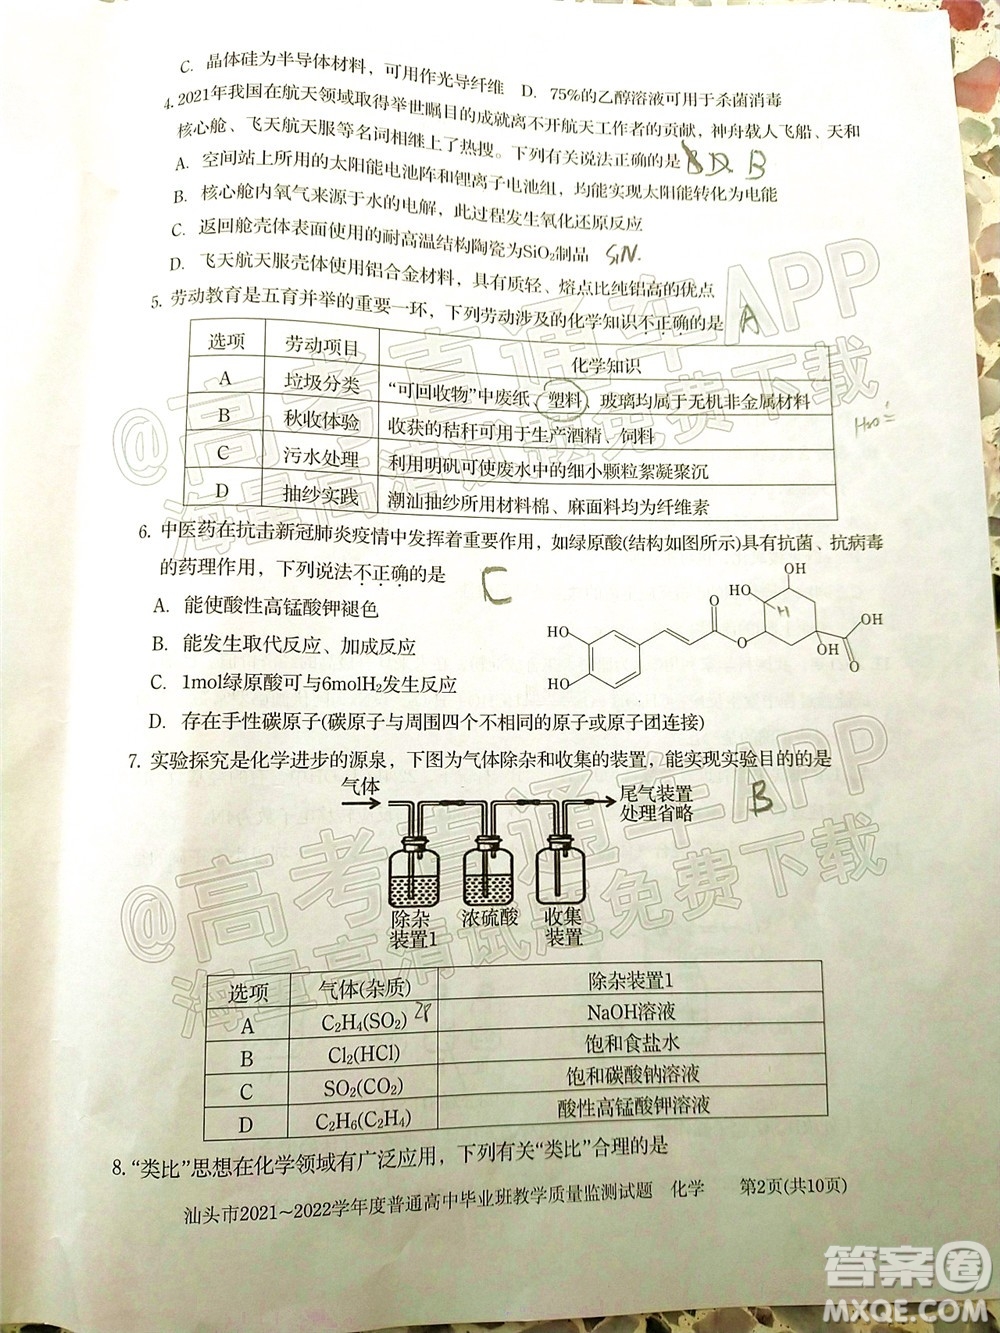 C. 晶体硅为半导体材料，可用作光导纤维 D. 75%的乙醇溶液可用于杀菌消毒
4. 2021年我国在航天领域取得举世瞩目的成就离不开航天工作者的贡献，神舟载人飞船、天和
核心舱、飞天航天服等名词相继上了热搜。下列有关说法正确的是 B
A. 空间站上所用的太阳能电池阵和锂离子电池组，均能实现太阳能转化为电能
B. 核心舱内氧气来源于水的电解，此过程发生氧化还原反应
C. 返回舱壳体表面使用的耐高温结构陶瓷为SiO₂制品 SiN.
D. 飞天航天服壳体使用铝合金材料，具有质轻、熔点比纯铝高的优点
5. 劳动教育是五育并举的重要一环，下列劳动涉及的化学知识不正确的是 A
选项 劳动项目 化学知识
A 垃圾分类 “可回收物”中废纸、塑料、玻璃均属于无机非金属材料
B 秋收体验 收获的秸秆可用于生产酒精、饲料
C 污水处理 利用明矾可使废水中的细小颗粒絮凝聚沉
D 抽纱实践 潮汕抽纱所用材料棉、麻面料均为纤维素
6. 中医药在抗击新冠肺炎疫情中发挥着重要作用，如绿原酸(结构如图所示)具有抗菌、抗病毒
的药理作用，下列说法不正确的是 C
A. 能使酸性高锰酸钾褪色
B. 能发生取代反应、加成反应
C. 1mol绿原酸可与6molH₂发生反应
D. 存在手性碳原子(碳原子与周围四个不相同的原子或原子团连接)
OH
HO
H
O
OH
HO
O
OH
O
HO
7. 实验探究是化学进步的源泉，下图为气体除杂和收集的装置，能实现实验目的的是
B
气体
尾气装置
处理省略
除杂
装置1
浓硫酸
收集
装置
选项 气体(杂质) 除杂装置1
A C₂H₄(SO₂) 28 NaOH溶液
B Cl₂(HCl) 饱和食盐水
C SO₂(CO₂) 饱和碳酸钠溶液
D C₂H₆(C₂H₄) 酸性高锰酸钾溶液
8. “类比”思想在化学领域有广泛应用，下列有关“类比”合理的是
汕头市2021～2022学年度普通高中毕业班教学质量监测试题 化学 第2页(共10页)
@高考直通车APP
海量高清试题免费下载
@高考直通车APP
海量高清试题免费下载
答案圈
MXQE.COM